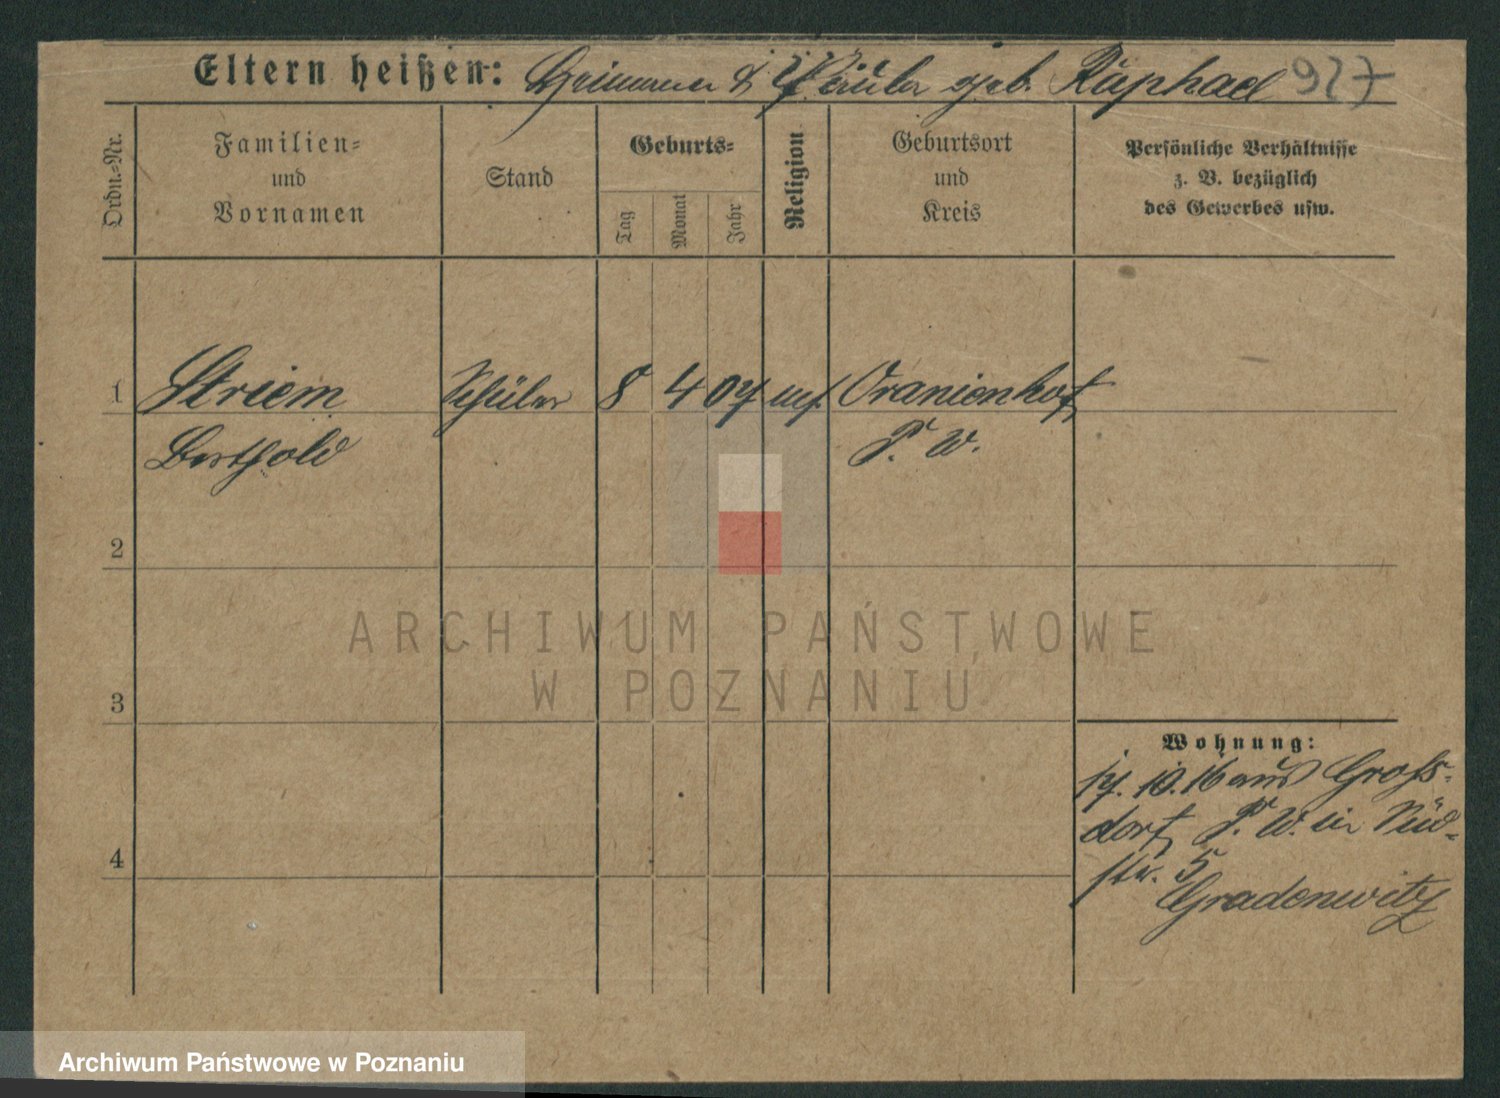 Eltern heißen: Heimann & Paula geb. Raphael 927
Ordn.-Nr.
Familien-
und
Vornamen
Stand
Geburts-
Tag
Monat
Jahr
Religion
Geburtsort
und
Kreis
Persönliche Verhältnisse
z. B. bezüglich
des Gewerbes usw.
1 Striem Schüler 8 4 07 mos. Oranienhof
Berthold P. W.
2
3
4
Wohnung:
17. 10. 16 aus Gross-
dorf, P. W. in
str. 5
Gradenwitz
ARCHIWUM PAŃSTWOWE
W POZNANIU
Archiwum Państwowe w Poznaniu